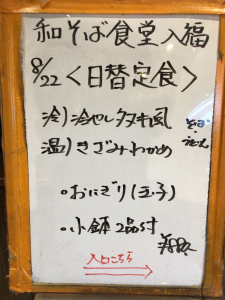 和そば食堂入福
8/22<日替定食>
冷)冷やしタヌキ風
温)きざみわかめ
そば
うどん
・おにぎり(玉子)
・小鉢2品付
入口こちら